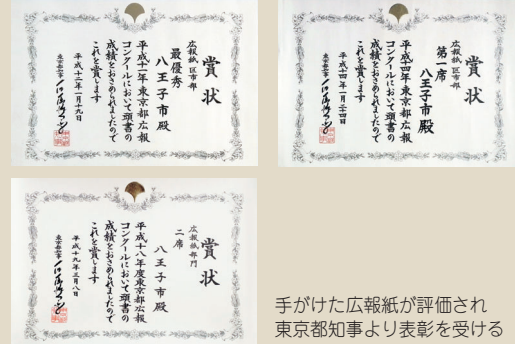 賞状
広報紙 区市部
最優秀
八王子市殿
平成十二年東京都広報
コンクールにおいて頭書の
成績をおさめられましたので
これを賞します
平成十二年一月十九日
東京都知事
賞状
広報紙 区市部
第一席
八王子市殿
平成十四年東京都広報
コンクールにおいて頭書の
成績をおさめられましたので
これを賞します
平成十四年一月二十四日
東京都知事
賞状
広報紙部門
二席
八王子市殿
平成十八年度東京都広報
コンクールにおいて頭書の
成績をおさめられましたので
これを賞します
平成十九年三月八日
東京都知事
手がけた広報紙が評価され
東京都知事より表彰を受ける